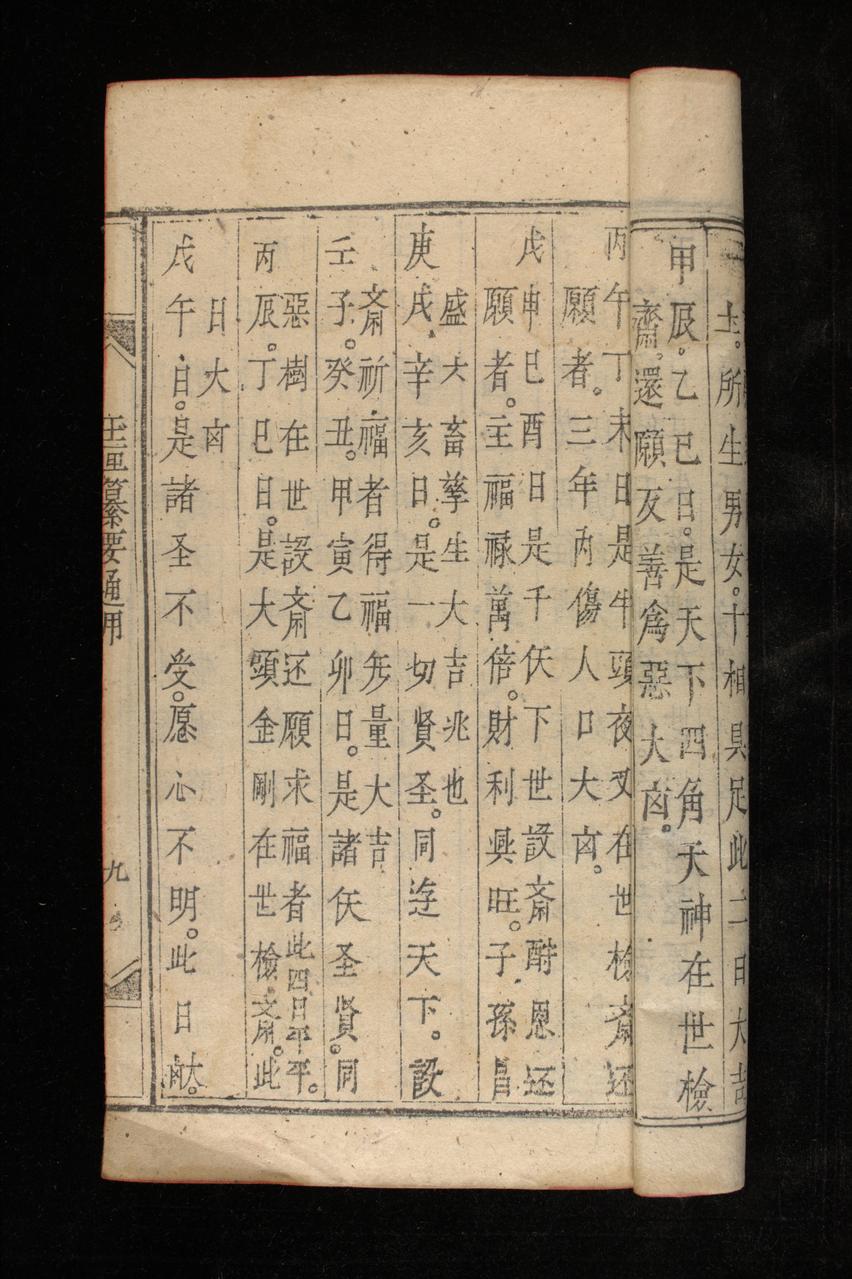 土。所生男女。十相具足此二日大吉
甲辰。乙巳日。是天下四角天神在世檢
齋。還願反善爲惡大㐫。
丙午丁未日是牛頭夜叉在世檢斎还
願者。三年内傷人口大㐫。
戊申巳酉日是千仸下世設斎酧恩还
願者。主福禄萬倍。財利興旺。子孫昌
盛六畜孳生大吉兆也
庚戌辛亥日。是一切賢圣。同逩天下。設
斎祈福者得福旡量大吉
壬子。癸丑。甲寅乙卯日。是諸仸圣賢。同
惡樹在世設斎还願求福者此四日平平。
丙辰。丁巳日。是大頭金剛在世檢斎。此
日大㐫
戊午日。是諸圣不受。愿心不明。此日献。
纂要通用
九